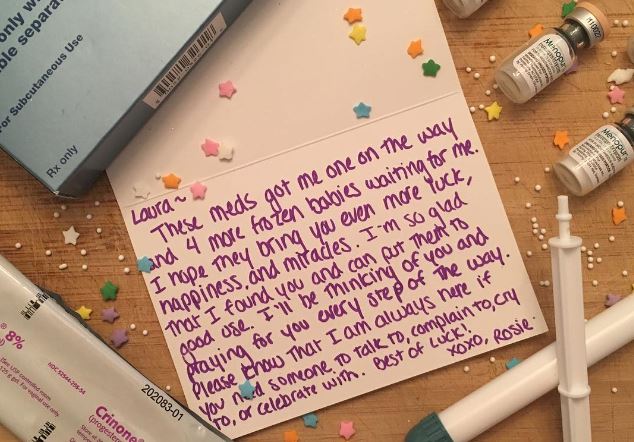 only w
ble separa
For Subcutaneous Use
Rx only
Menopur
Menopur
Laura~
These meds got me one on the way
and 4 more frozen babies waiting for me.
I hope they bring you even more luck,
happiness, and miracles. I'm so glad
that I found you and can put them to
good use. I'll be thinking of you and
praying for you every step of the way.
Please know that I am always here if
you need someone to talk to, complain to, cry
to, or celebrate with. Best of luck!
xoxo, Rosie.
8%
202083-01
Crinone